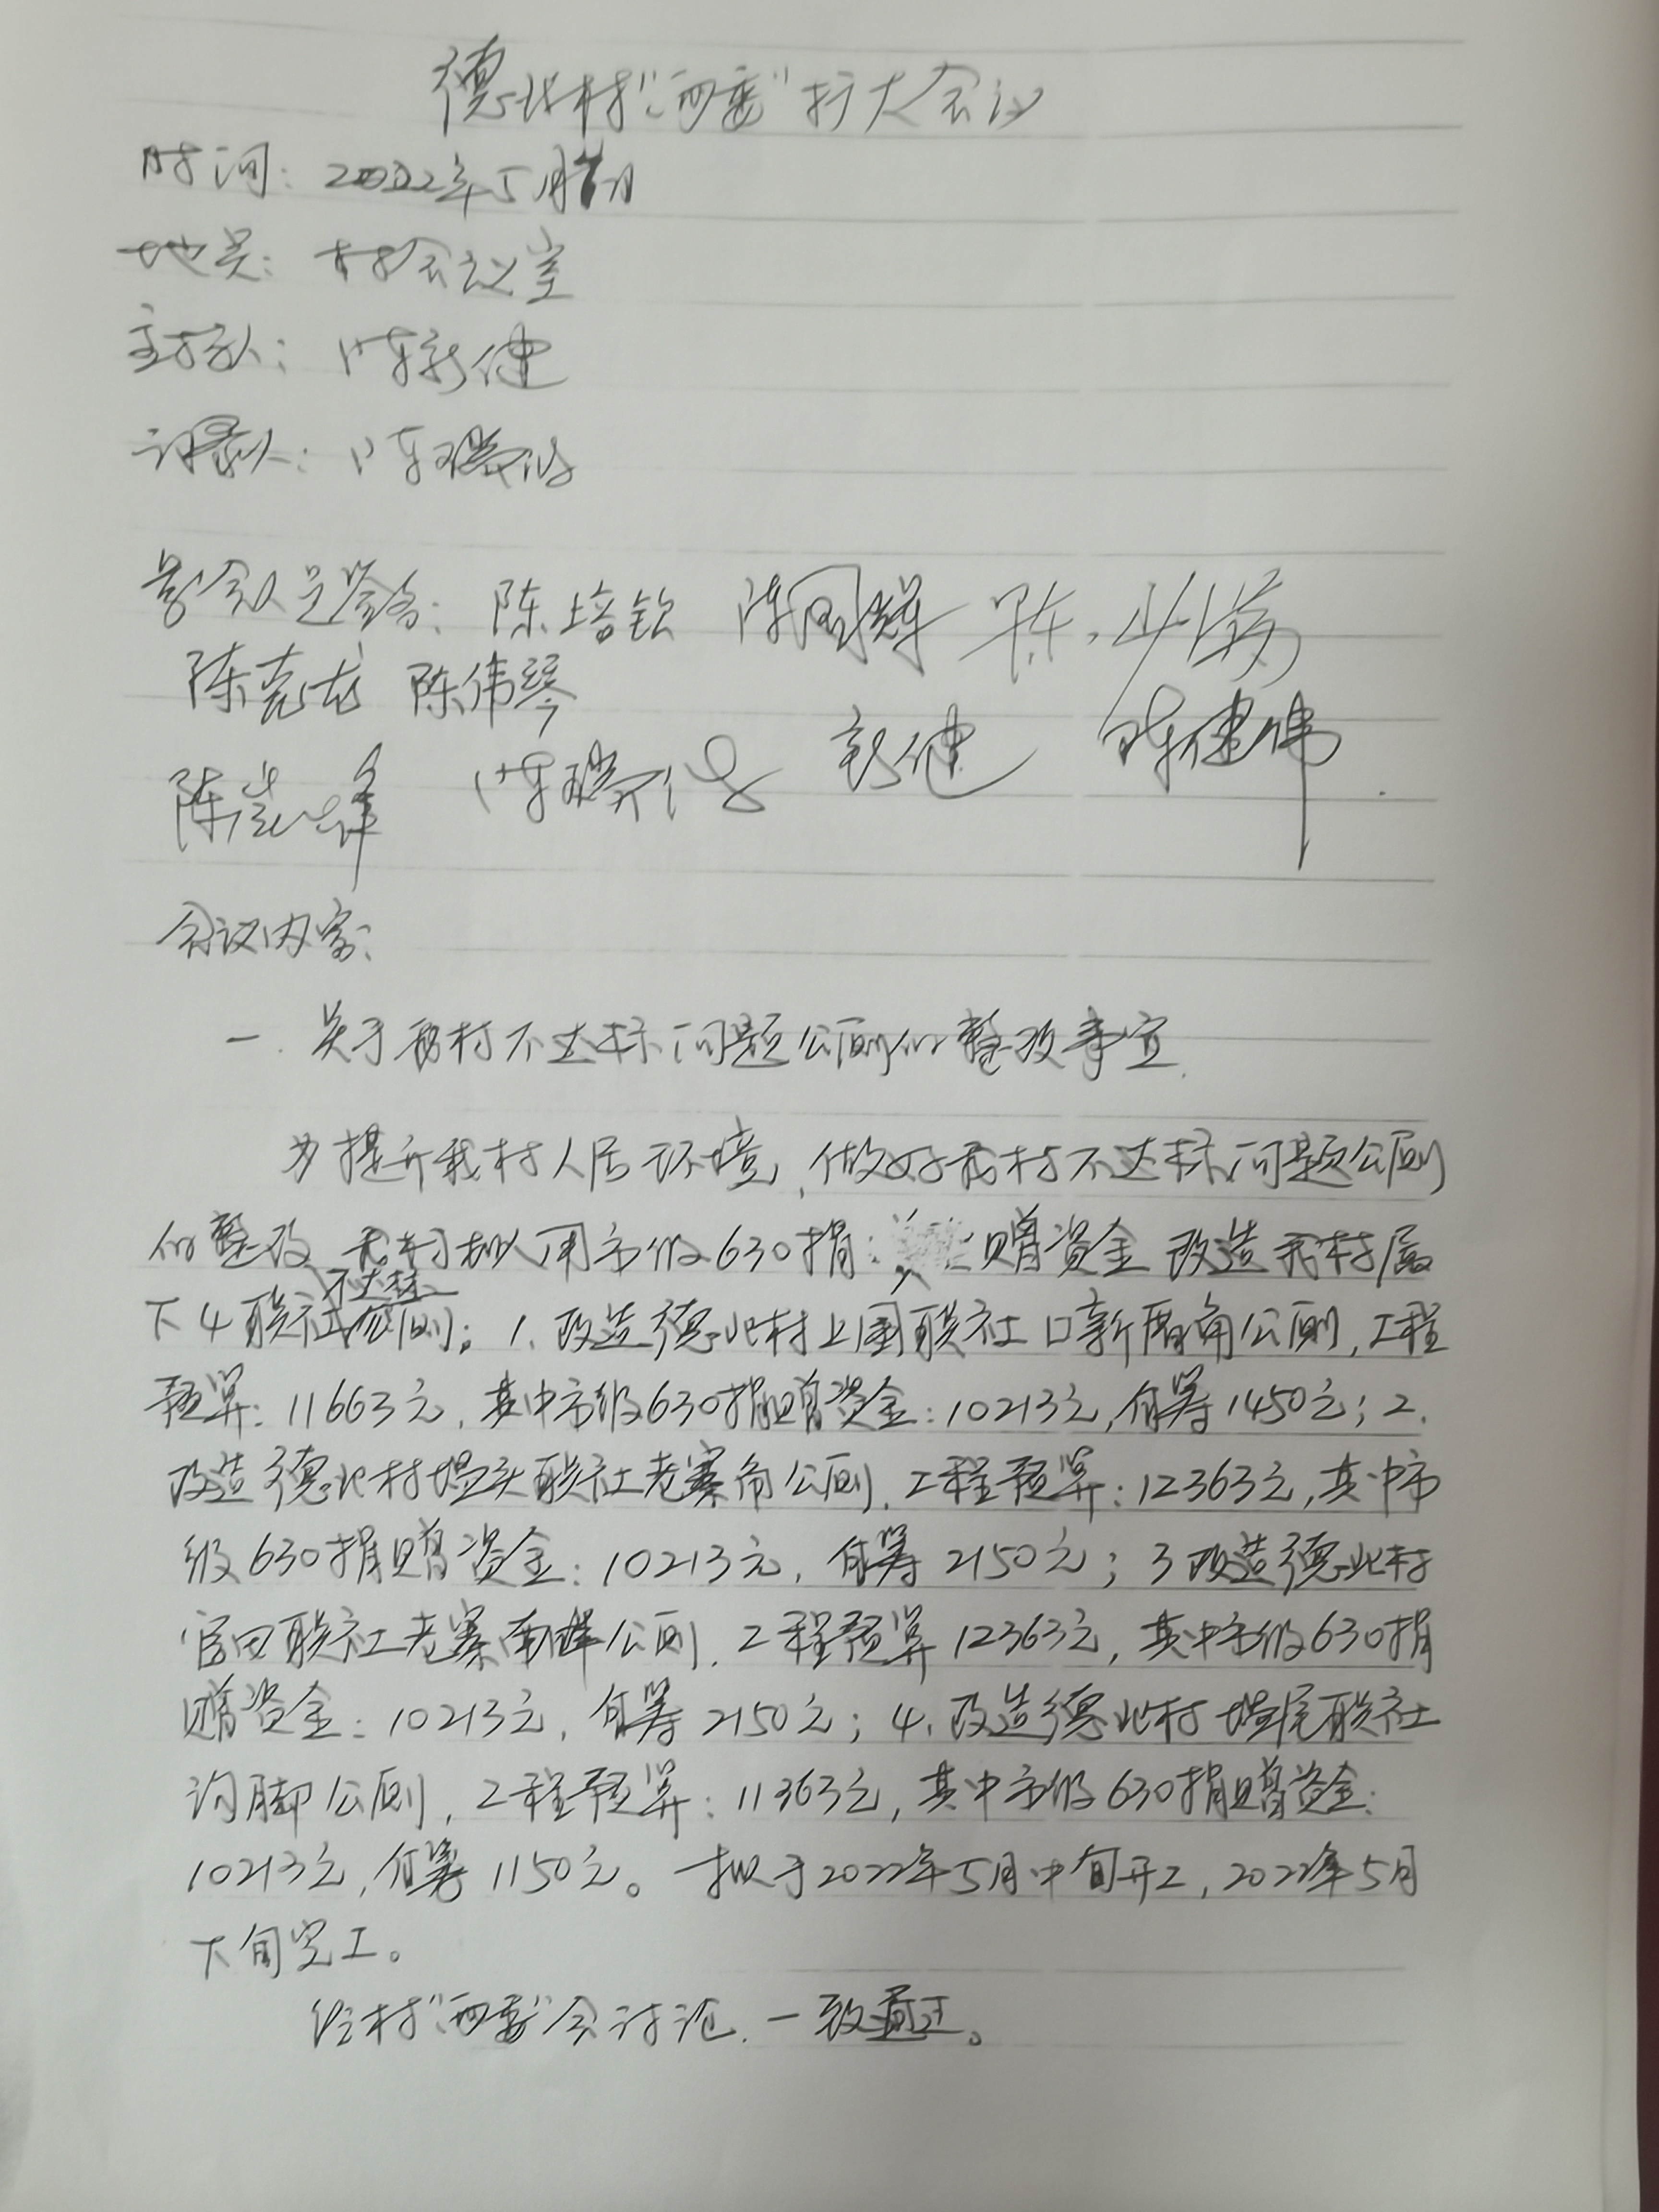 德北村“两委”扩大会议
时间：2022年5月7日
地点：村会议室
主持人：陈新健
记录人：陈瑞
参会人员签名：陈培钦 陈国辉 陈
陈克龙 陈伟琴
陈岚峰 陈瑞 新健 陈健伟
会议内容：
一. 关于我村不达标问题公厕的整改事宜.
为提升我村人居环境，做好我村不达标问题公厕
的整改，我村拟用市级630捐赠资金改造我村属
不达标
下4联社公厕：1、改造德北村上围联社口新厝角公厕，工程
预算：11663元，其中市级630捐赠资金：10213元，自筹1450元；2、
改造德北村埕头联社老寨角公厕，工程预算：12363元，其中市
级630捐赠资金：10213元，自筹2150元；3改造德北村
官田联社老寨南畔公厕，工程预算12363元，其中市级630捐
赠资金：10213元，自筹2150元；4、改造德北村埕尾联社
沟脚公厕，工程预算：11363元，其中市级630捐赠资金：
10213元，自筹1150元。拟于2022年5月中旬开工，2022年5月
下旬完工。
经村“两委”会讨论，一致通过。